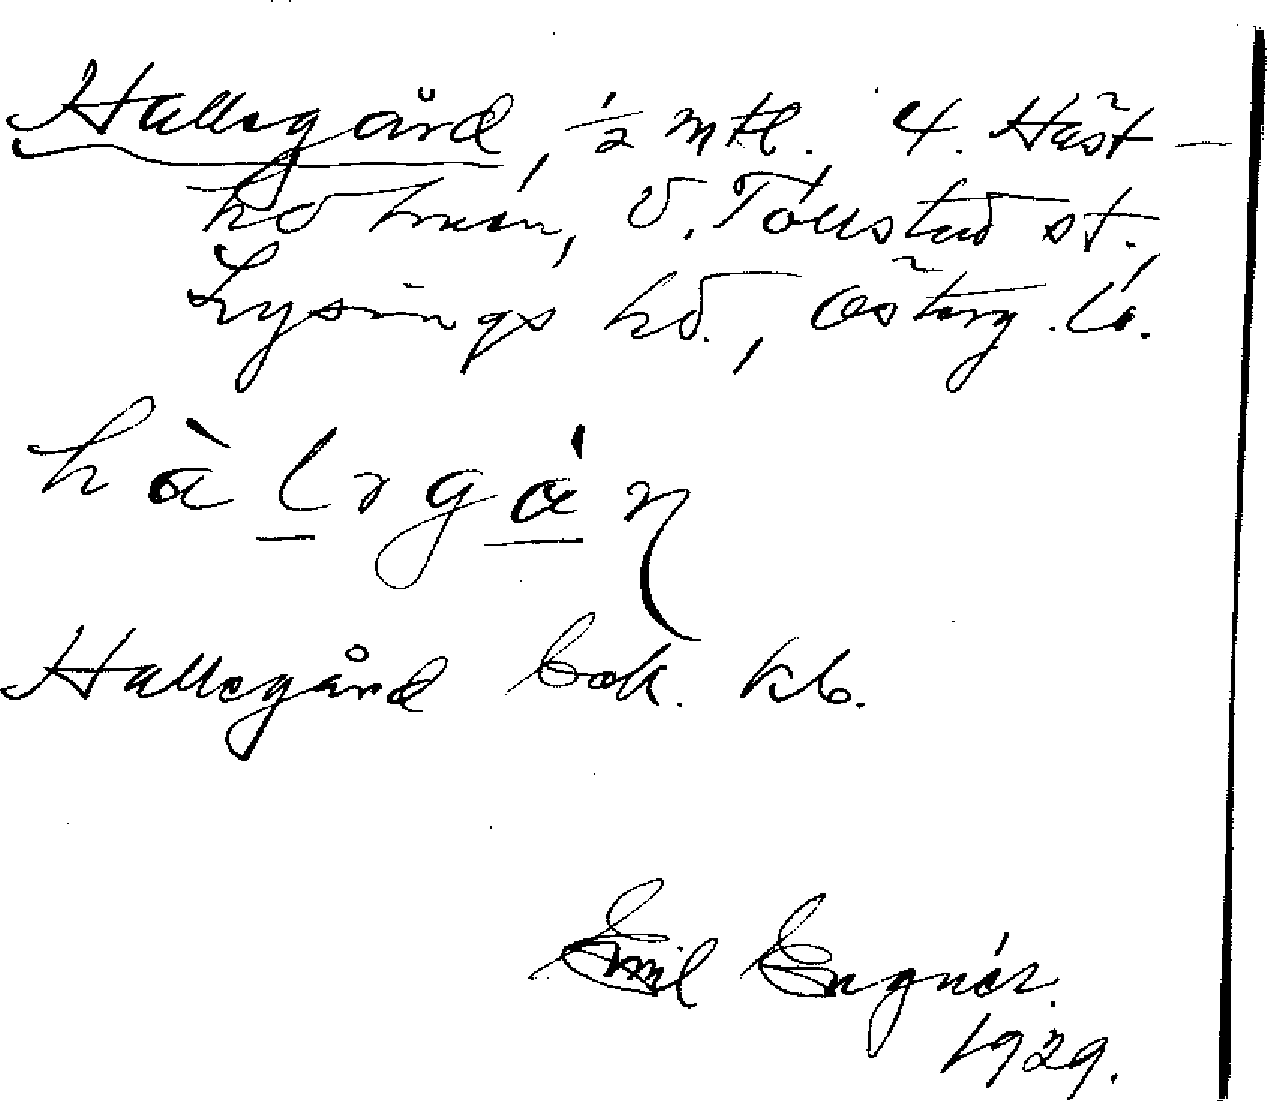 Hallegård, ½ mtl. 4. Häst-
holmen, V. Tollstad st.
Lysings hd., Österg. l.
Hallegård bok. kb.
Emil Engnér.
1929.